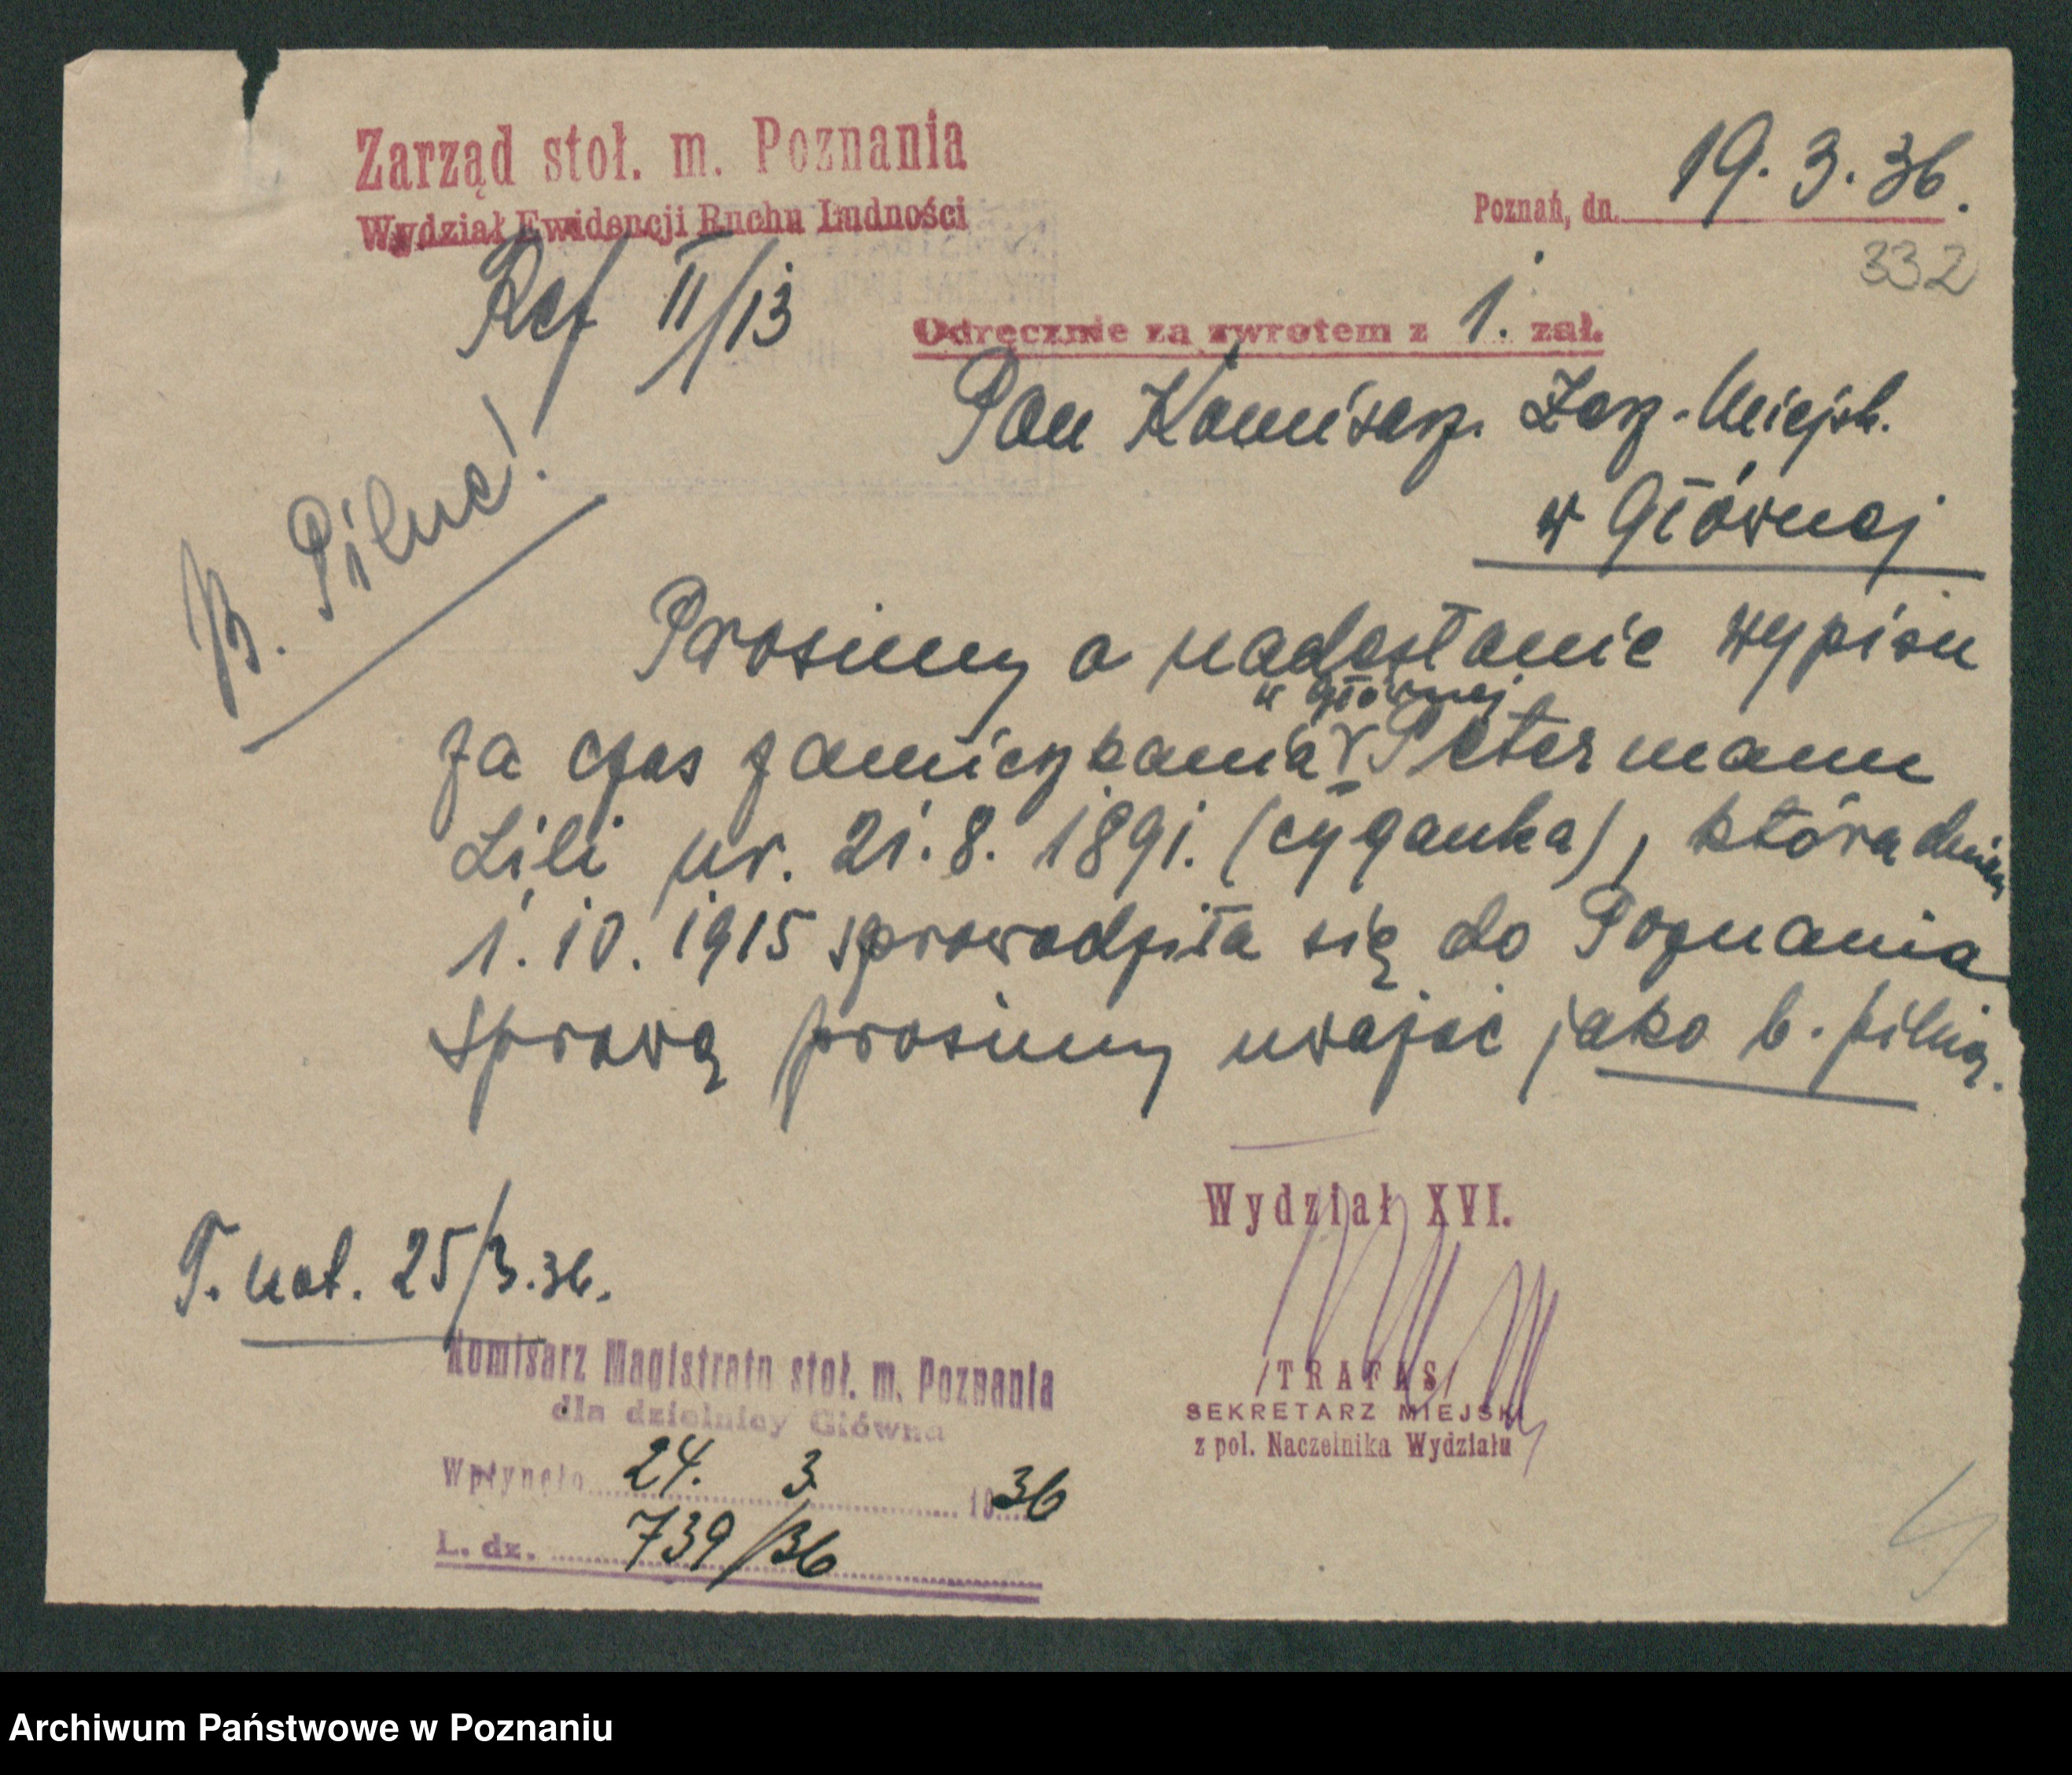 Zarząd stoł. m. Poznania
Wydział Ewidencji Ruchu Ludności
Poznań, dn. 19. 3. 36.
332
Ref II/13
Odręcznie za zwrotem z 1. zał.
Pan Komisarz. Zarz. Miejsk.
w Głównej
B. Pilne!
Prosimy o nadesłanie wypisu
w Głównej
za czas zamieszkania Petermann
Lili ur. 21. 8. 1891. (cyganka), która dnia
1. 10. 1915 sprowadziła się do Poznania
Sprawę prosimy uważać jako b. pilną.
Wydział XVI.
T. not. 25/3. 36.
/TRAFAS/
SEKRETARZ MIEJSKI
z pol. Naczelnika Wydziału
Komisarz Magistratu stoł. m. Poznania
dla dzielnicy Główna
Wpłynęło 24. 3. 1936
L. dz. 739/36
Archiwum Państwowe w Poznaniu